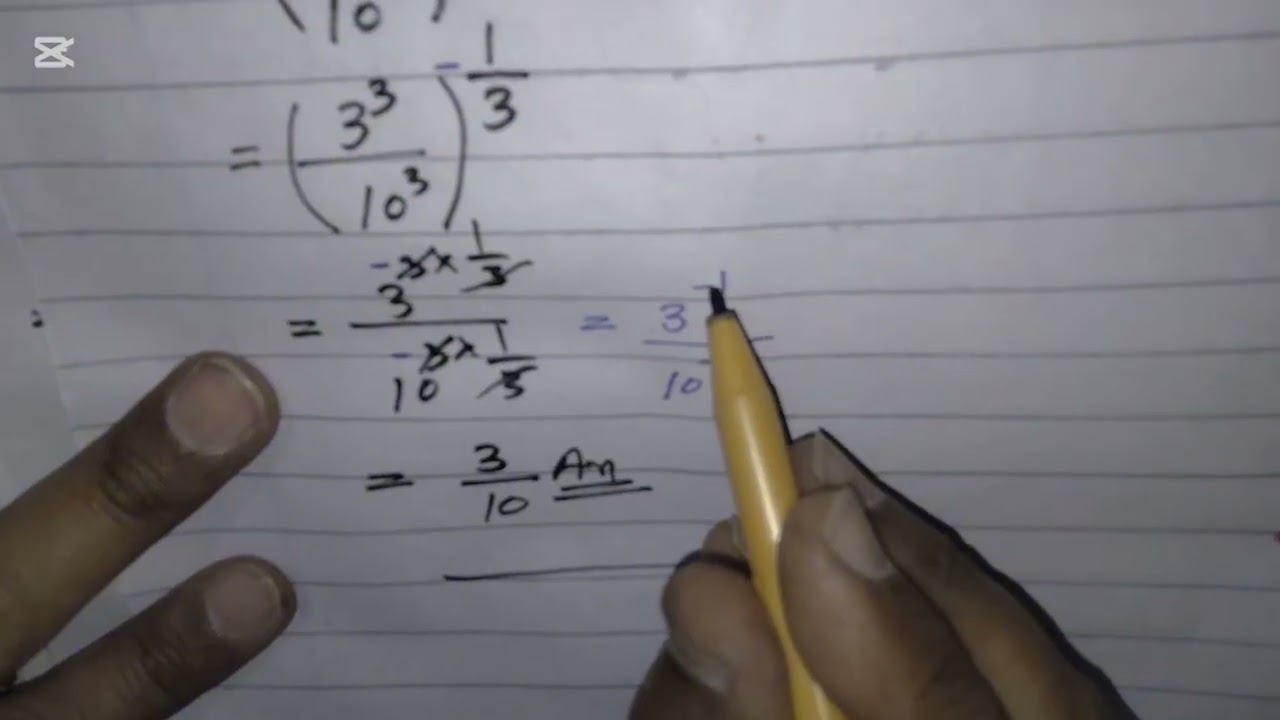 10 )
= (3³/10³)^-1/3
= 3^-3×1/3 / 10^-3×1/3 = 3^-1 / 10
= 3/10 An